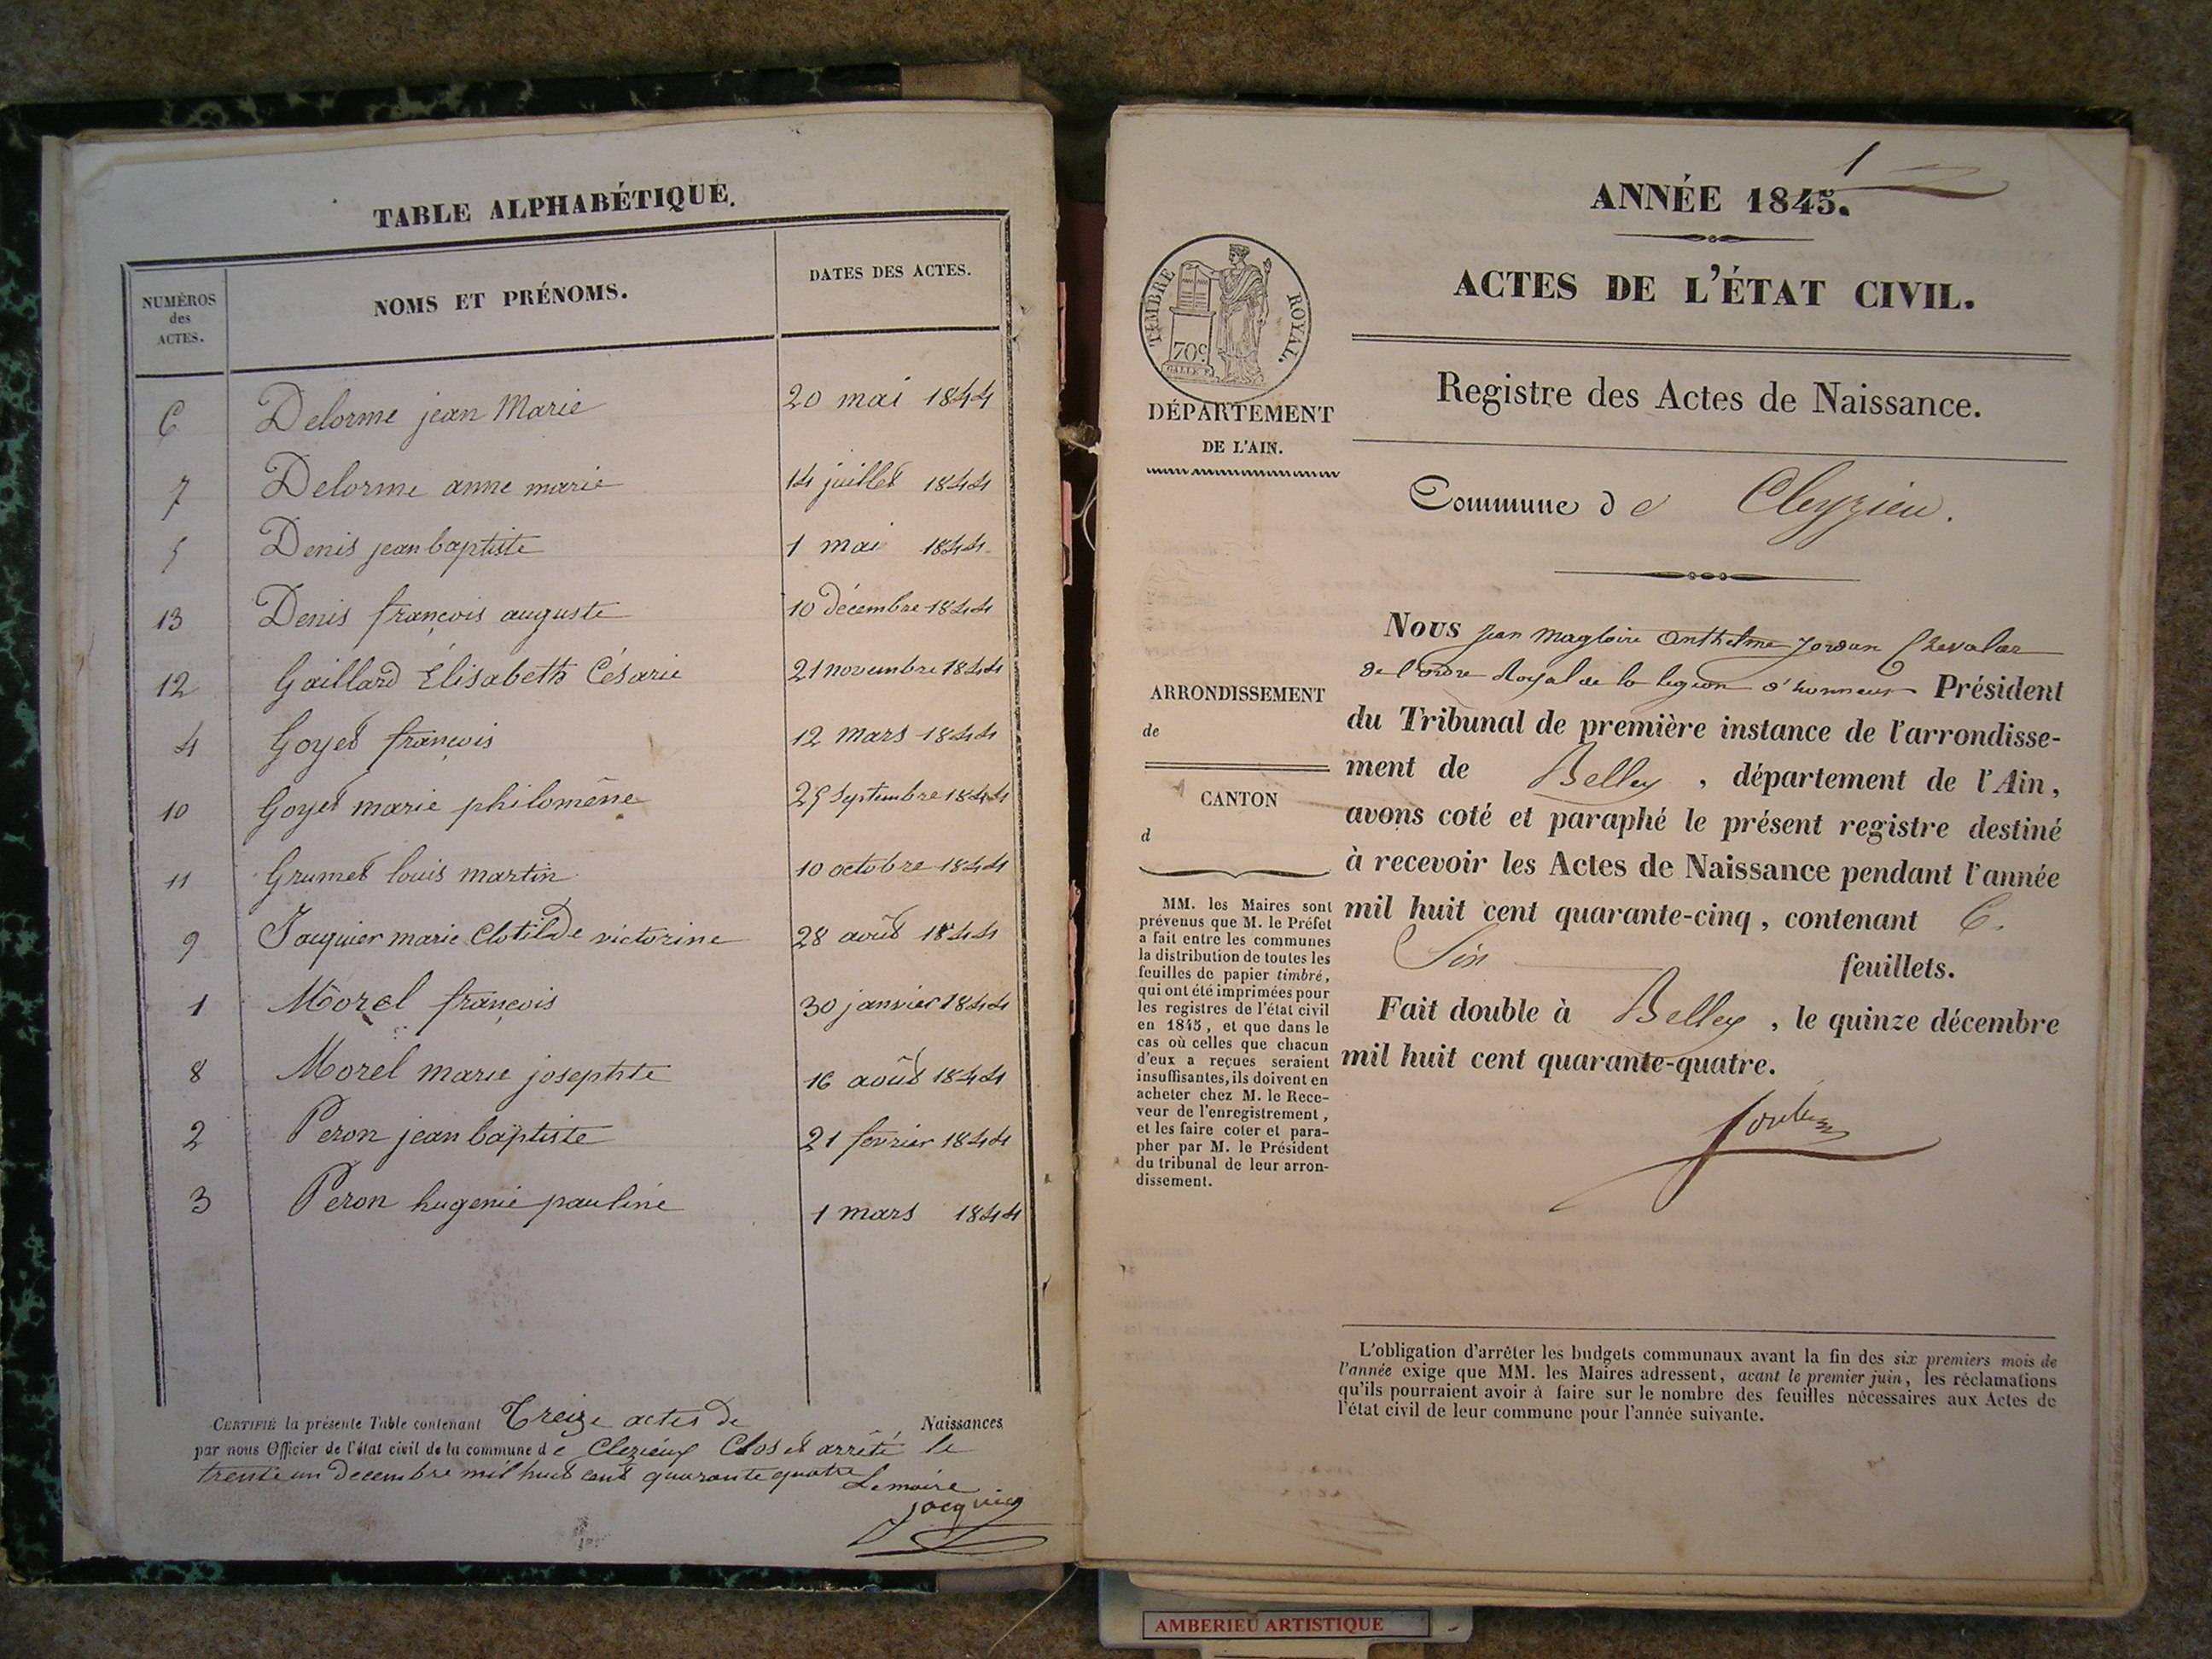 TABLE ALPHABÉTIQUE.
NUMÉROS des ACTES. NOMS ET PRÉNOMS. DATES DES ACTES.
6 Delorme jean Marie 20 mai 1844
7 Delorme anne marie 14 juillet 1844
5 Denis jean baptiste 1 mai 1844
13 Denis françois auguste 10 décembre 1844
12 Gaillard Élisabeth Césarie 21 novembre 1844
4 Goyet françois 12 mars 1844
10 Goyet marie philomène 29 septembre 1844
11 Grumet louis martin 10 octobre 1844
9 Jacquier marie Clotilde victorine 28 août 1844
1 Morel françois 30 janvier 1844
8 Morel marie josephte 16 août 1844
2 Peron jean baptiste 21 fevrier 1844
3 Peron hugenie pauline 1 mars 1844
CERTIFIÉ la présente Table contenant Treize actes de Naissances
par nous Officier de l'état civil de la commune de Clezieux Clos et arrêté le
trente un decembre mil huit cent quarante quatre
Le maire
jacquier
1
ANNÉE 1845.
ACTES DE L'ÉTAT CIVIL.
TIMBRE ROYAL.
70c.
DÉPARTEMENT
DE L'AIN.
Registre des Actes de Naissance.
Commune de Cleyzieu.
ARRONDISSEMENT
de
CANTON
d
MM. les Maires sont
prévenus que M. le Préfet
a fait entre les communes
la distribution de toutes les
feuilles de papier timbré,
qui ont été imprimées pour
les registres de l'état civil
en 1845, et que dans le
cas où celles que chacun
d'eux a reçues seraient
insuffisantes, ils doivent en
acheter chez M. le Rece-
veur de l'enregistrement,
et les faire coter et para-
pher par M. le Président
du tribunal de leur arron-
dissement.
Nous Jean Magloire Anthelme Jordan Chevalier
de l'ordre Royal de la legion d'honneur Président
du Tribunal de première instance de l'arrondisse-
ment de Belley, département de l'Ain,
avons coté et paraphé le présent registre destiné
à recevoir les Actes de Naissance pendant l'année
mil huit cent quarante-cinq, contenant 6.
Six feuillets.
Fait double à Belley, le quinze décembre
mil huit cent quarante-quatre.
L'obligation d'arrêter les budgets communaux avant la fin des six premiers mois de
l'année exige que MM. les Maires adressent, avant le premier juin, les réclamations
qu'ils pourraient avoir à faire sur le nombre des feuilles nécessaires aux Actes de
l'état civil de leur commune pour l'année suivante.
AMBERIEU ARTISTIQUE